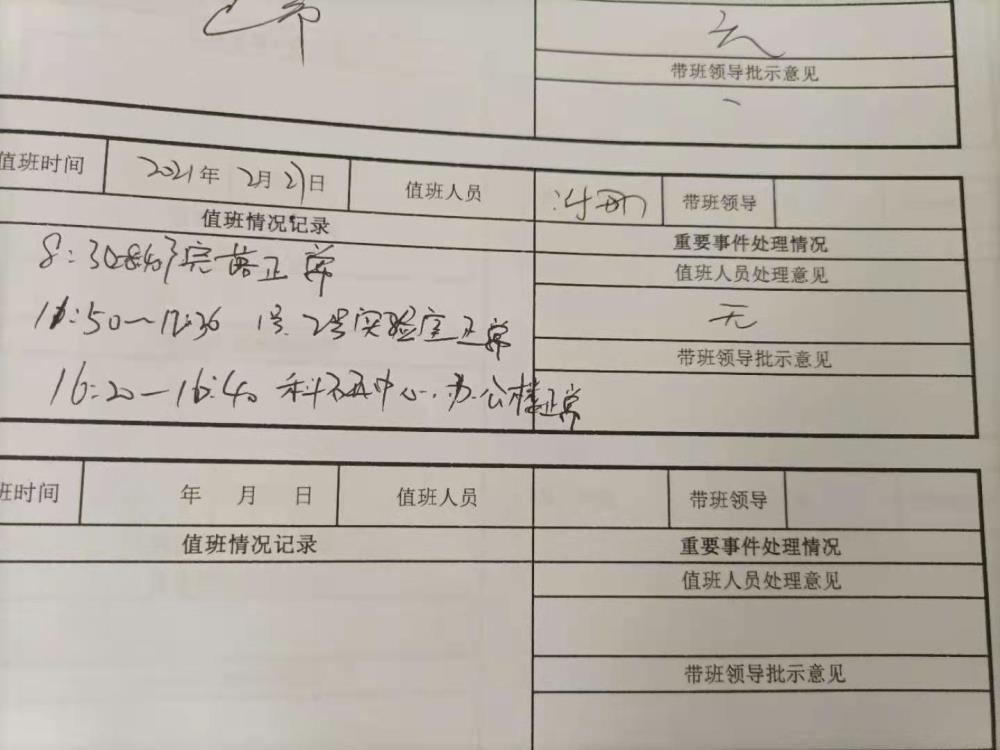 正常
无
带班领导批示意见
值班时间 2021年 2月21日 值班人员 带班领导
值班情况记录 重要事件处理情况
8:30 正常 值班人员处理意见
11:50—12:36 1号、2号实验室正常 无
带班领导批示意见
16:20—16:40 科研中心、办公楼正常
班时间 年 月 日 值班人员 带班领导
值班情况记录 重要事件处理情况
值班人员处理意见
带班领导批示意见